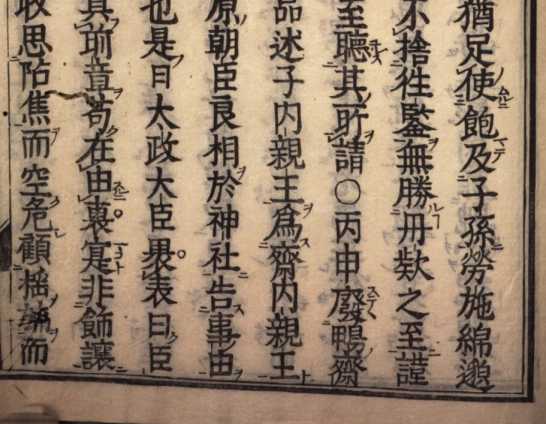 猶足使飽及子孫勞施綿邈
不捨徃鑒無勝丹欵之至謹
至聽其所請○丙申廢鴨齋
品述子内親王爲齋内親王
原朝臣良相於神社告事由
也是日大政大臣褁表曰臣
其章苟在由裏寔非飾讓
収思陷焦而空危顧而